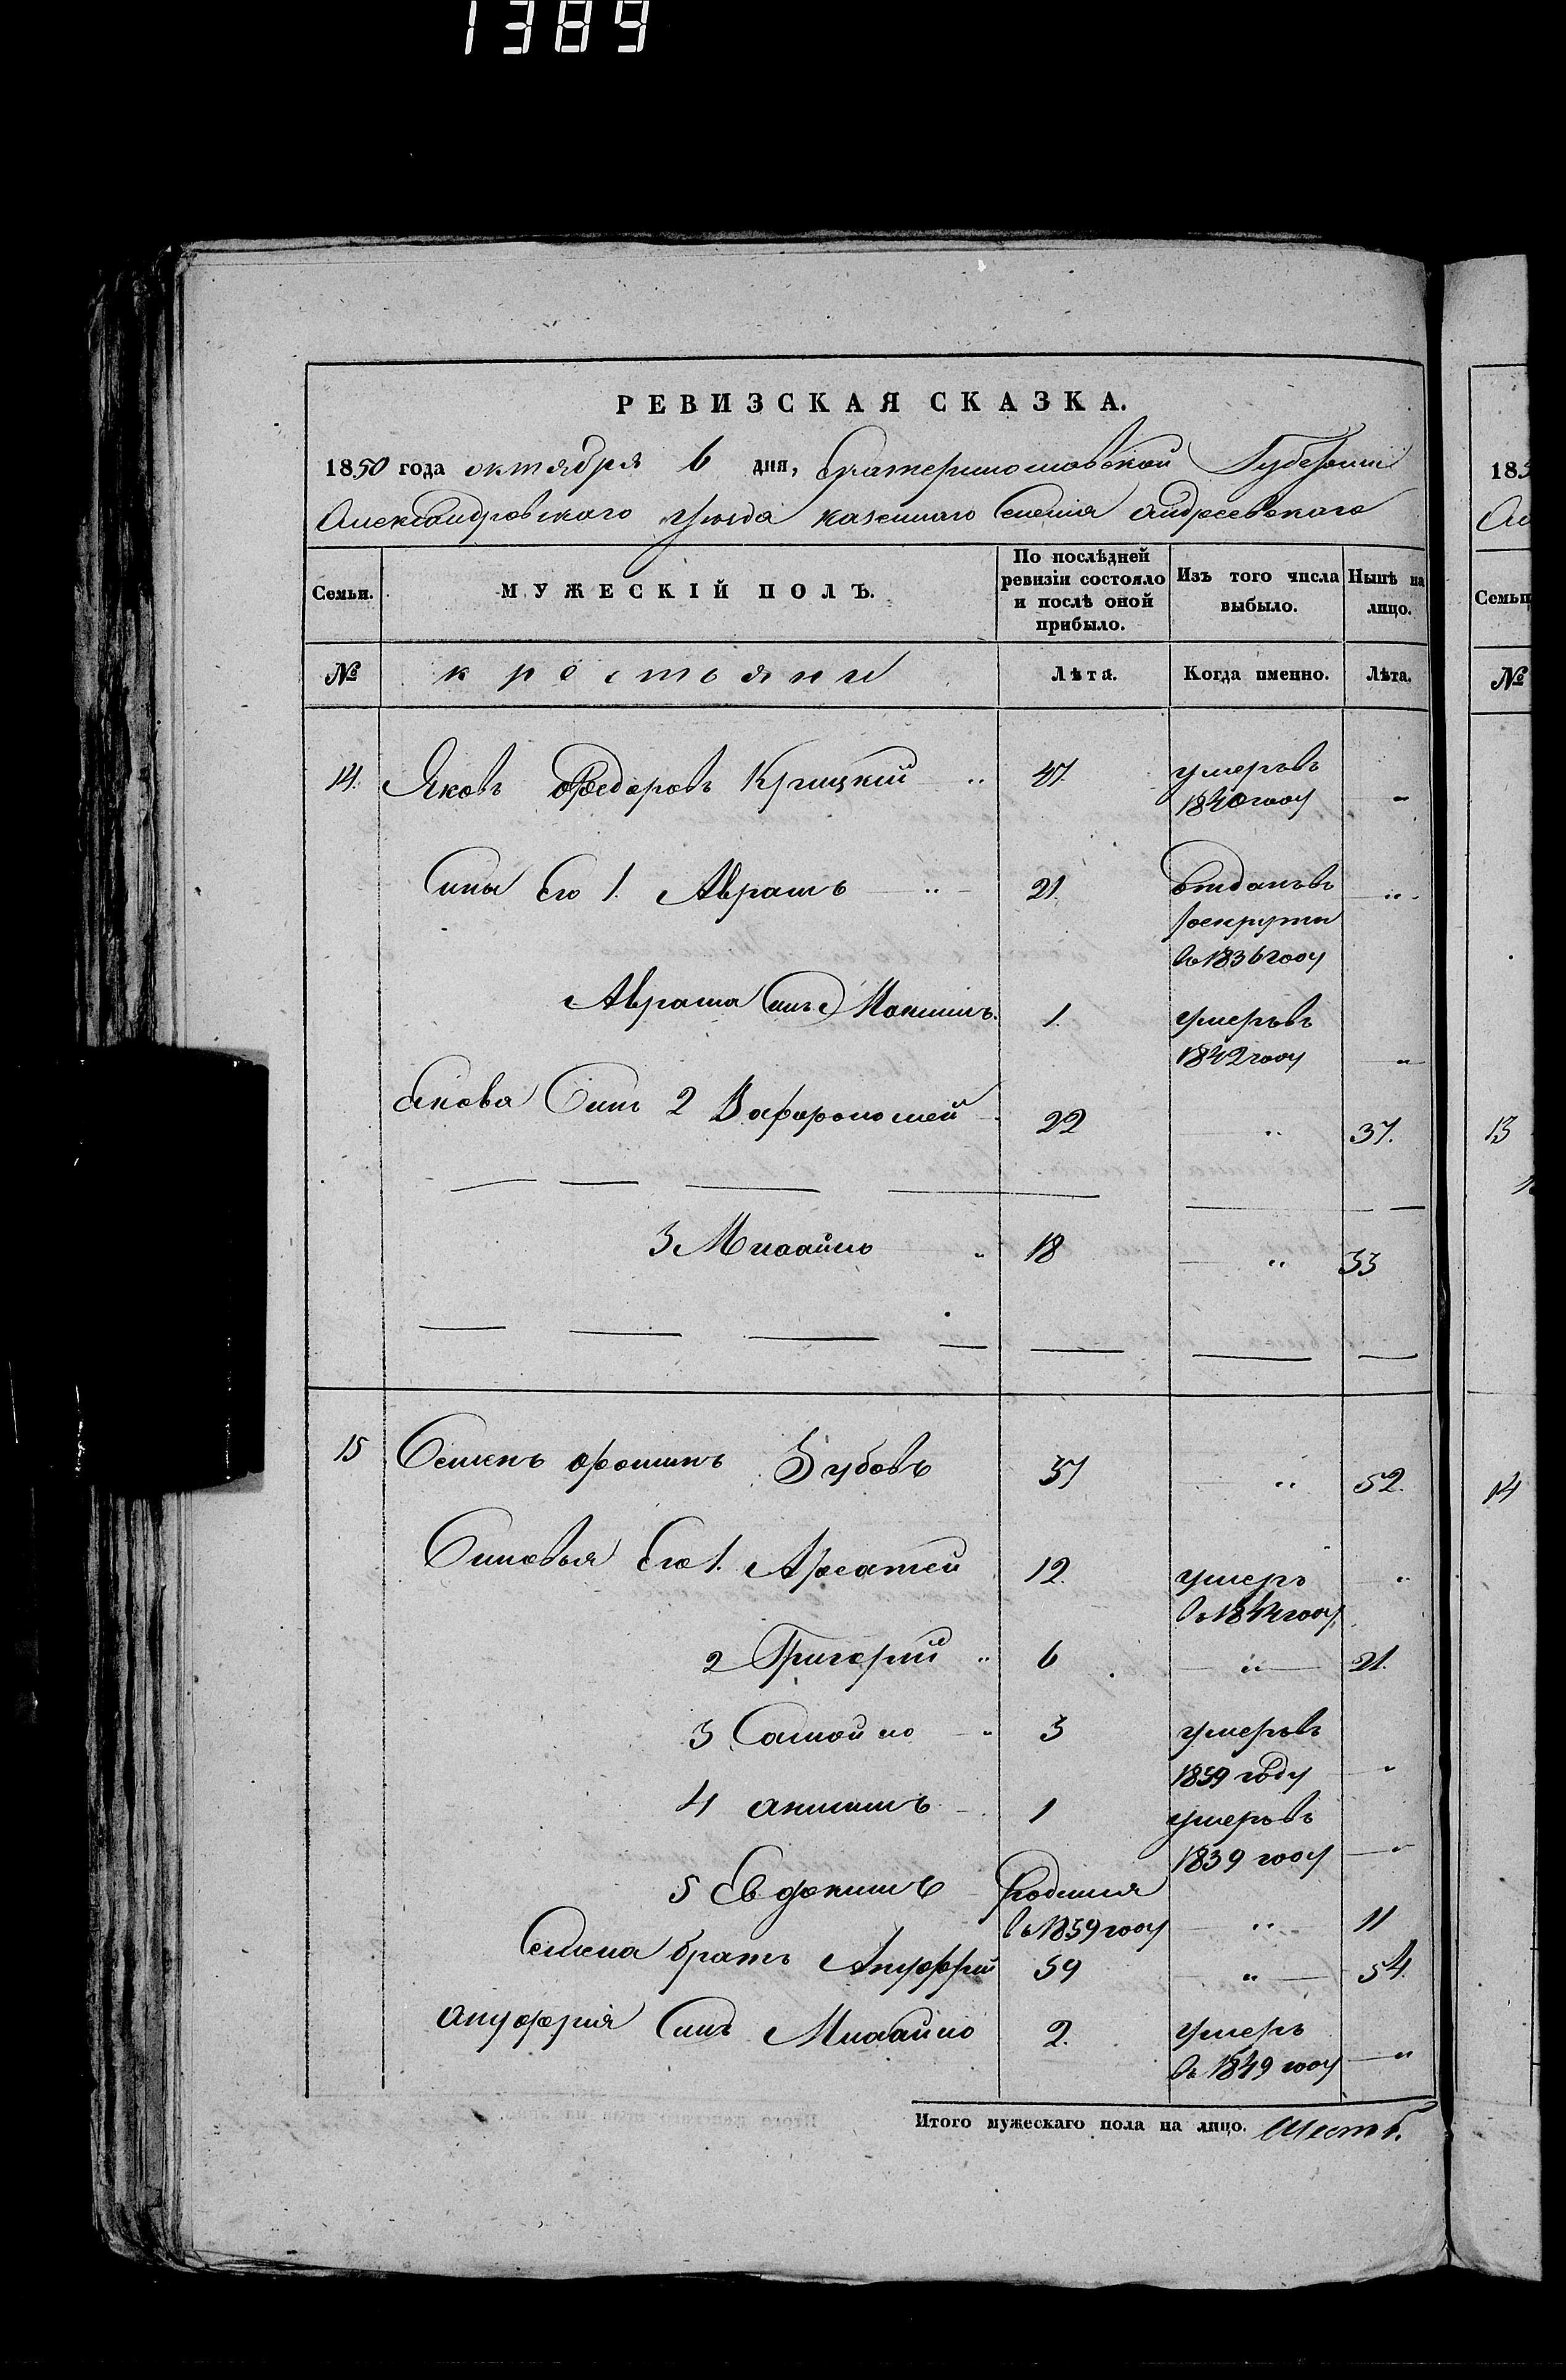 1389
РЕВИЗСКАЯ СКАЗКА.
1850 года октября 6 дня, Екатеринославской Губернии
Александровского уезда казенного Селения Андреевского
Семьи. МУЖЕСКІЙ ПОЛЪ. По послѣдней ревизіи состояло и послѣ оной прибыло. Изъ того числа выбыло. Нынѣ на лицо.
№ крестьяни Лѣта. Когда именно. Лѣта.
14. Яковъ Федоровъ Крицкий 47. умеръ въ
1840 году
Сины Его 1. Аврамъ 21. Отданъ в
рекруты
въ 1836 году
Аврама Синъ Максимъ. 1. умеръ въ
1842 году
Якова Синъ 2 Вафоромей 22 37.
3 Михайло 18 33
15 Семенъ Фоминъ Зубовъ 37 52.
Синовья Его 1. Арсатей 12. умеръ
въ 1844 году
2 Григорий 6 21.
3 Самойло 3 умеръ въ
1839 году
4 Акимъ 1 умеръ въ
1839 году
5 Евдокимъ родился
въ 1839 году 11
Семена братъ Ануфрий 39 54.
Ануфрия Синъ Михайло 2. умеръ
въ 1849 году
Итого мужескаго пола на лицо. Шесть.
185
Семьи
№
13
14